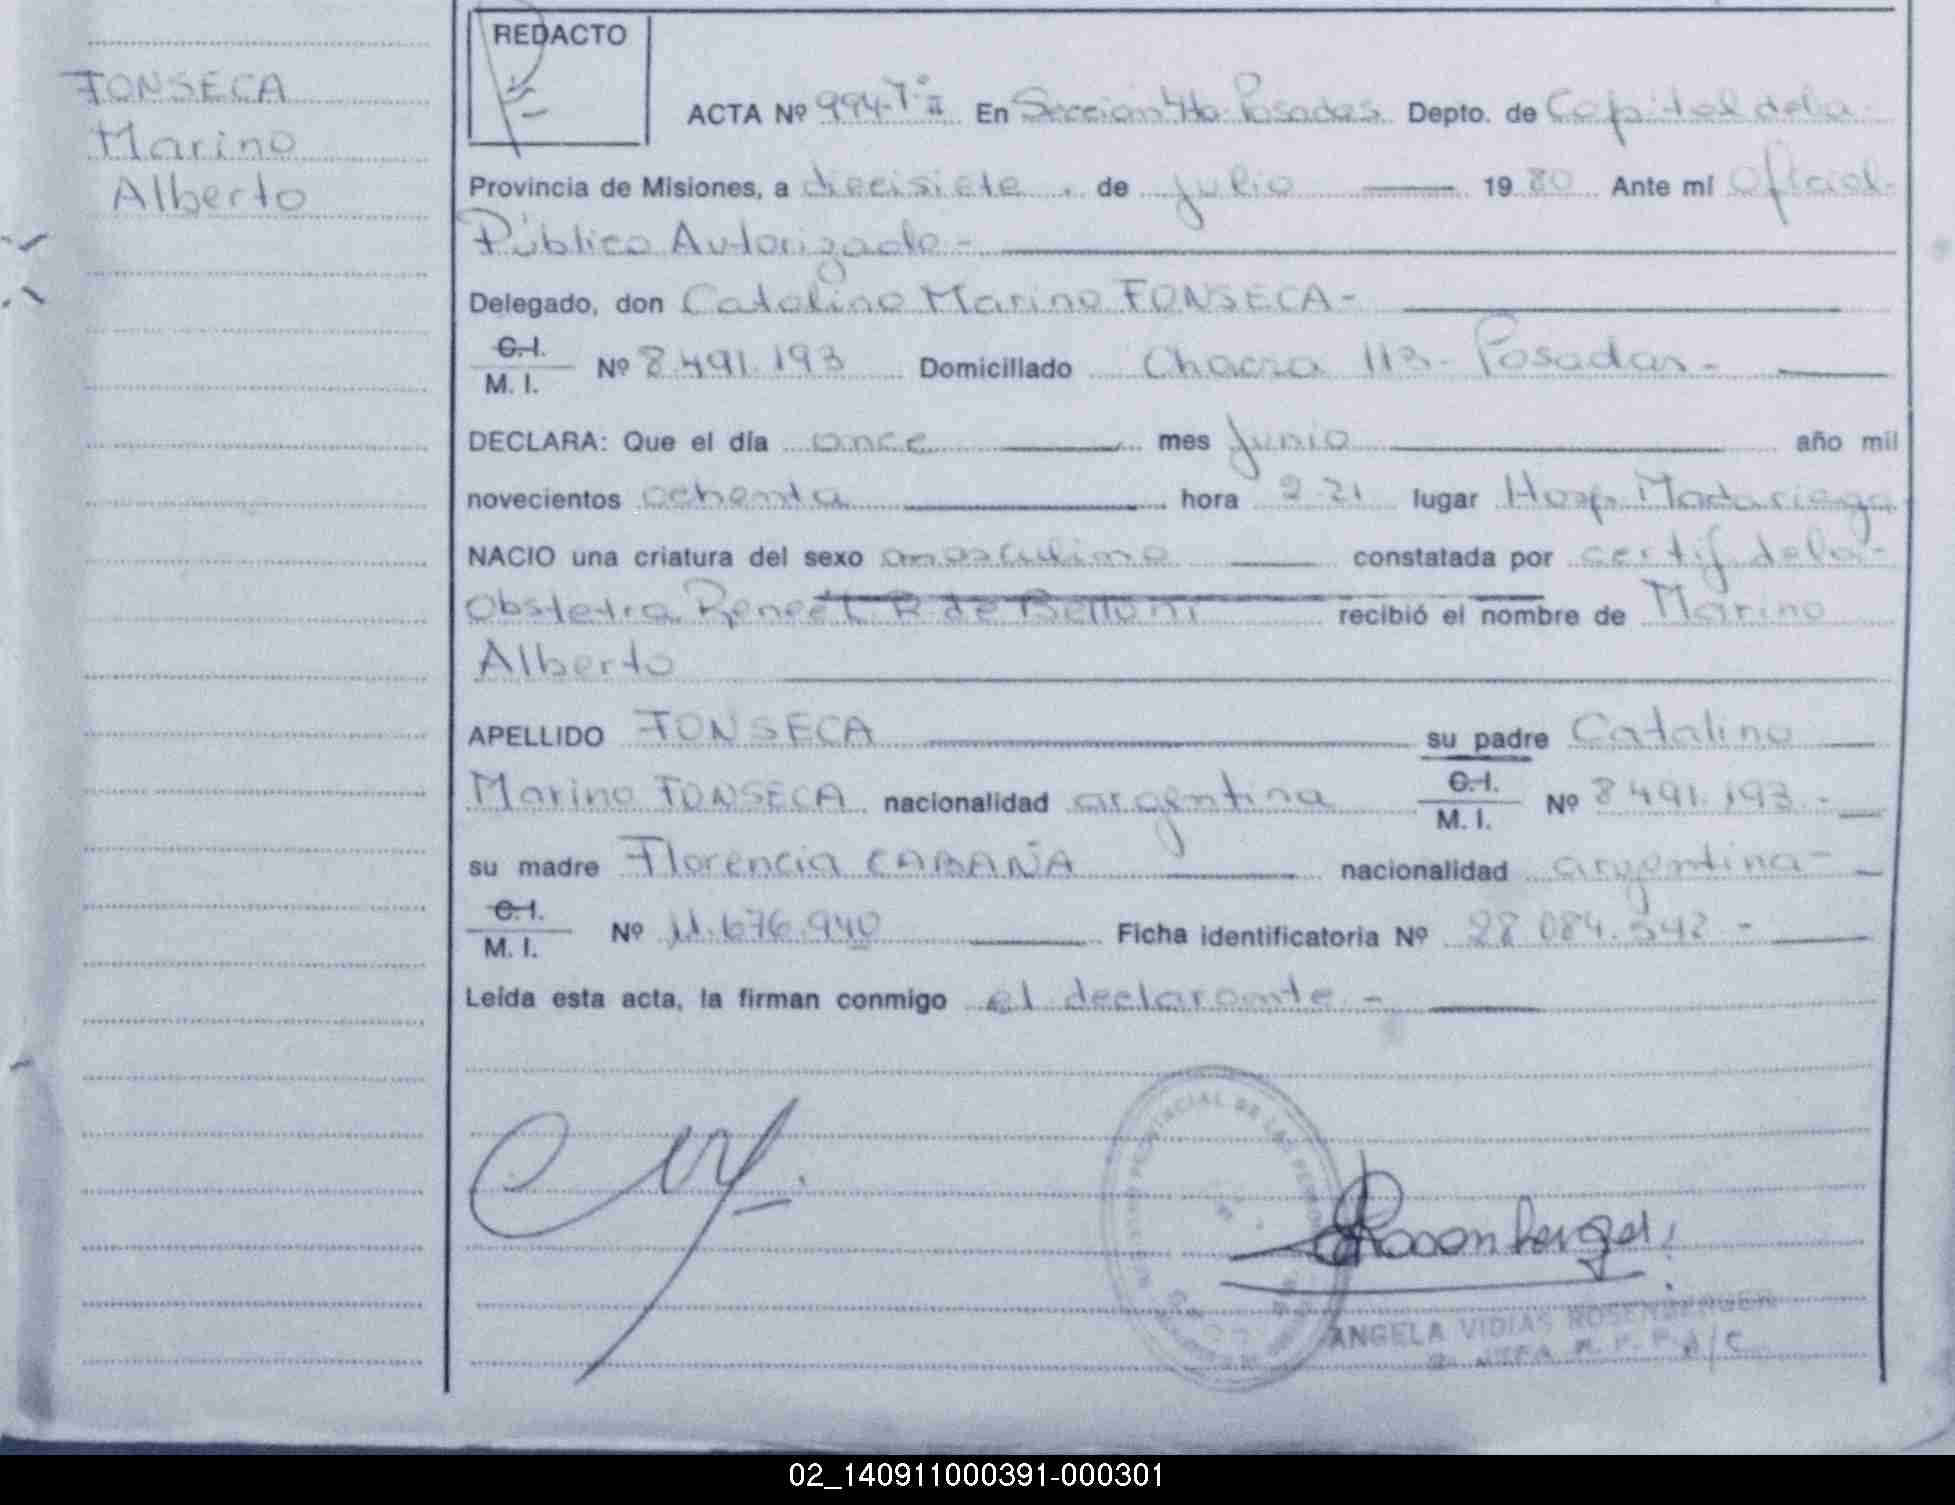 FONSECA
Marino
Alberto
REDACTO
ACTA Nº 994-Tº II En Sección 4ta Posadas Depto. de Capital de la-
Provincia de Misiones, a diecisiete de julio 1980 Ante mí Oficial-
Público Autorizado-
Delegado, don Catalino Marino FONSECA-
C.I.
M. I. Nº 8.491.193 Domiciliado Chacra 113- Posadas-
DECLARA: Que el día once mes junio año mil
novecientos ochenta hora 2.21 lugar Hosp. Madariaga
NACIO una criatura del sexo masculino constatada por certif de la-
Obstetra Renee L. R de Belloni recibió el nombre de Marino
Alberto
APELLIDO FONSECA su padre Catalino
Marino FONSECA nacionalidad argentina C.I. M. I. Nº 8.491.193.-
su madre Florencia CABAÑA nacionalidad argentina-
C.I.
M. I. Nº 11.676.940 Ficha identificatoria Nº 28.084.542-
Leída esta acta, la firman conmigo el declarante-
PROVINCIAL DE LAS
Rosenberger
ANGELA VIDIAS ROSENBERGER
JEFA R.P.P. A/C
02_140911000391-000301